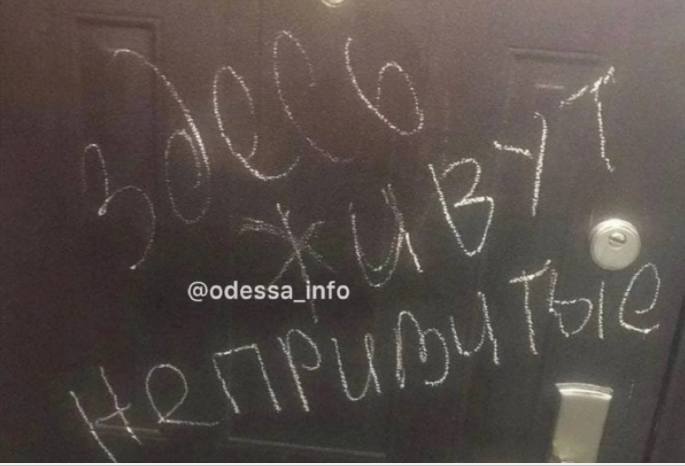 здесь
живут
@odessa_info
непривитые